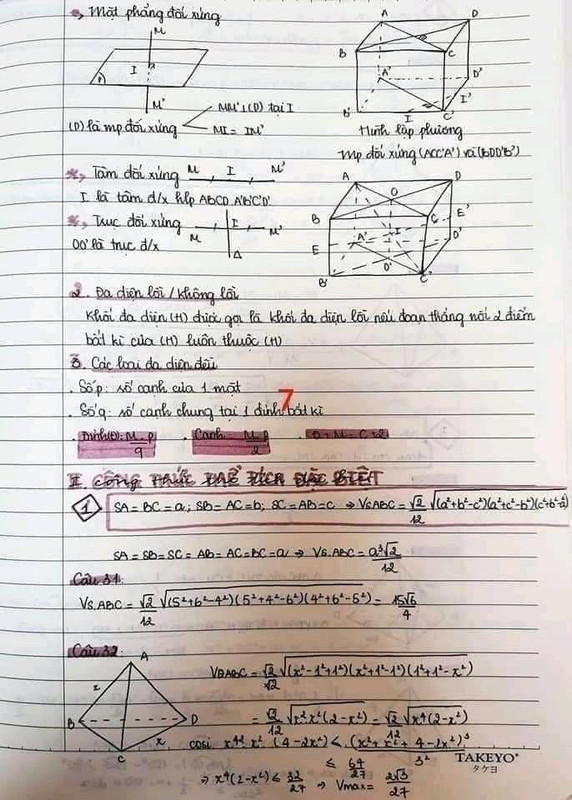 *, Mặt phẳng đối xứng
M
I
P
M'
(P) là mp đối xứng
MM' ⊥ (P) tại I
MI = IM'
A
D
B
C
A'
D'
B'
I
I'
C'
Hình lập phương
Mp đối xứng (ACC'A') và (BDD'B')
*, Tâm đối xứng M I M'
I là tâm đ/x hlp ABCD.A'B'C'D'
*, Trục đối xứng M I M'
Δ
OO' là trục đ/x
A
D
O
B
C
E'
E
A'
I
D'
O'
B'
C'
2. Đa diện lồi / không lồi
Khối đa diện (H) được gọi là khối đa diện lồi nếu đoạn thẳng nối 2 điểm
bất kì của (H) luôn thuộc (H)
3. Các loại đa diện đều
. Số p: số cạnh của 1 mặt
7
. Số q: số cạnh chung tại 1 đỉnh bất kì
. Đỉnh(Đ): M.p/q . Cạnh: M.p/2 . Đ + M - C = 2
II. CÔNG THỨC THỂ TÍCH ĐẶC BIỆT
1 SA = BC = a; SB = AC = b; SC = AB = c ⇒ VS.ABC = √2/12 √(a²+b²-c²)(a²+c²-b²)(c²+b²-a²)
SA = SB = SC = AB = AC = BC = a ⇒ VS.ABC = a³√2/12
Câu 31:
VS.ABC = √2/12 √(5²+6²-4²)(5²+4²-6²)(4²+6²-5²) = 15√6/4
Câu 32
A
x
B
D
x
C
VDABC = √2/√2 √(x²-1²+1²)(x²+1²-1²)(1²+1²-x²)
= √2/12 √x²x²(2-x²) = √2/12 √x⁴(2-x²)
x² x² (4-2x²) ≤ (x²+x²+4-2x²)³/3²
≤ 64/27
⇒ x⁴(2-x²) ≤ 32/27 ⇒ Vmax = 2√3/27
TAKEYO®
タケヨ